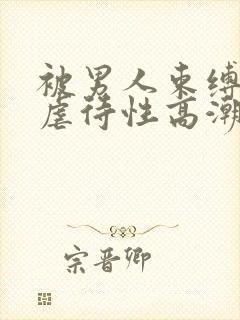 被男人束缚
虐待性高潮
宗晋卿